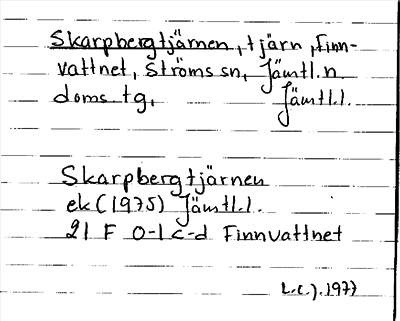 Skarpbergtjärnen, tjärn, Finn-
vattnet, Ströms sn, Jämtl.n.
doms tg, Jämtl.l.
Skarpbergtjärnen
ek (1975) Jämtl.l.
21 F 0-1 c-d Finnvattnet
L.C.J. 1977